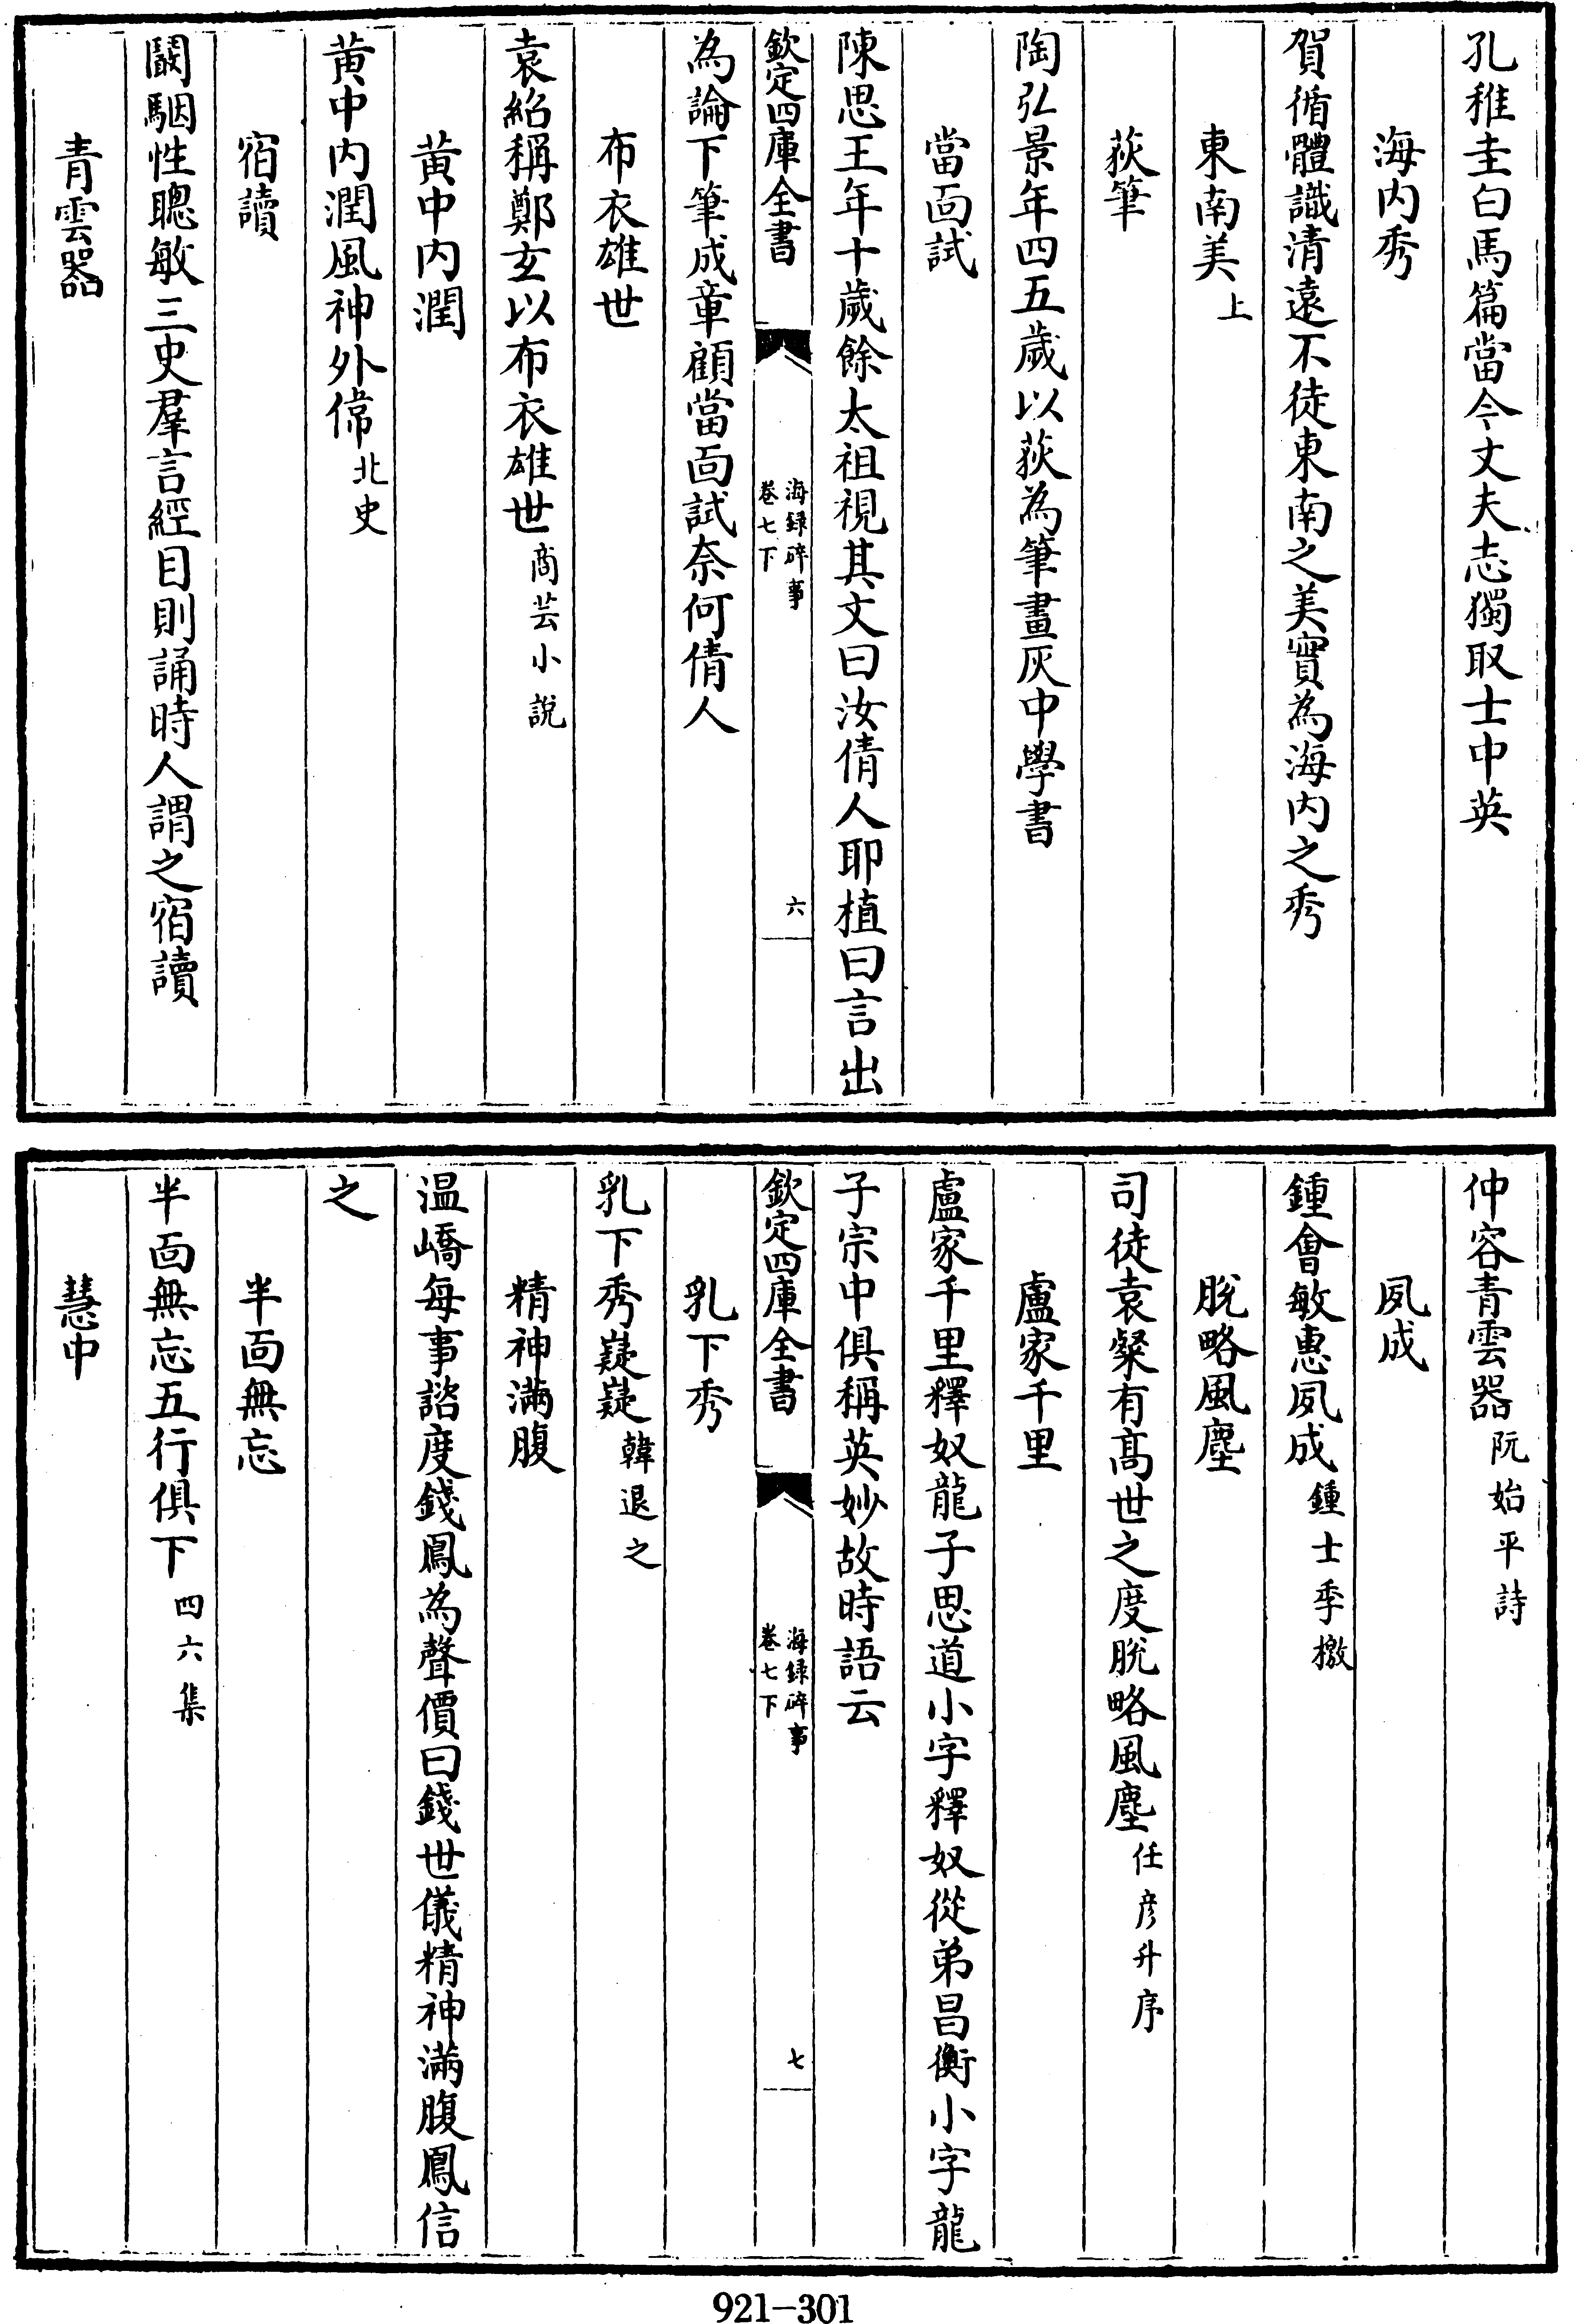 孔稚圭白馬篇當今丈夫志獨取士中英
海内秀
賀循體識清遠不徒東南之美實為海内之秀
東南美上
荻筆
陶弘景年四五歲以荻為筆畫灰中學書
當面試
陳思王年十歲餘太祖視其文曰汝倩人耶植曰言出
欽定四庫全書
海録碎事
卷七下
六
為論下筆成章顧當面試奈何倩人
布衣雄世
袁紹稱鄭玄以布衣雄世商芸小說
黄中内潤
黄中内潤風神外偉北史
宿讀
闞駰性聰敏三史羣言經目則誦時人謂之宿讀
青雲器
仲容青雲器阮始平詩
夙成
鍾會敏惠夙成鍾士季檄
脫略風塵
司徒袁粲有髙世之度脫略風塵任彦升序
盧家千里
盧家千里釋奴龍子思道小字釋奴從弟昌衡小字龍
子宗中俱稱英妙故時語云
欽定四庫全書
海録碎事
卷七下
七
乳下秀
乳下秀嶷嶷韓退之
精神滿腹
温嶠每事諮度錢鳳為聲價曰錢世儀精神滿腹鳳信
之
半面無忘
半面無忘五行俱下四六集
慧中
921-301